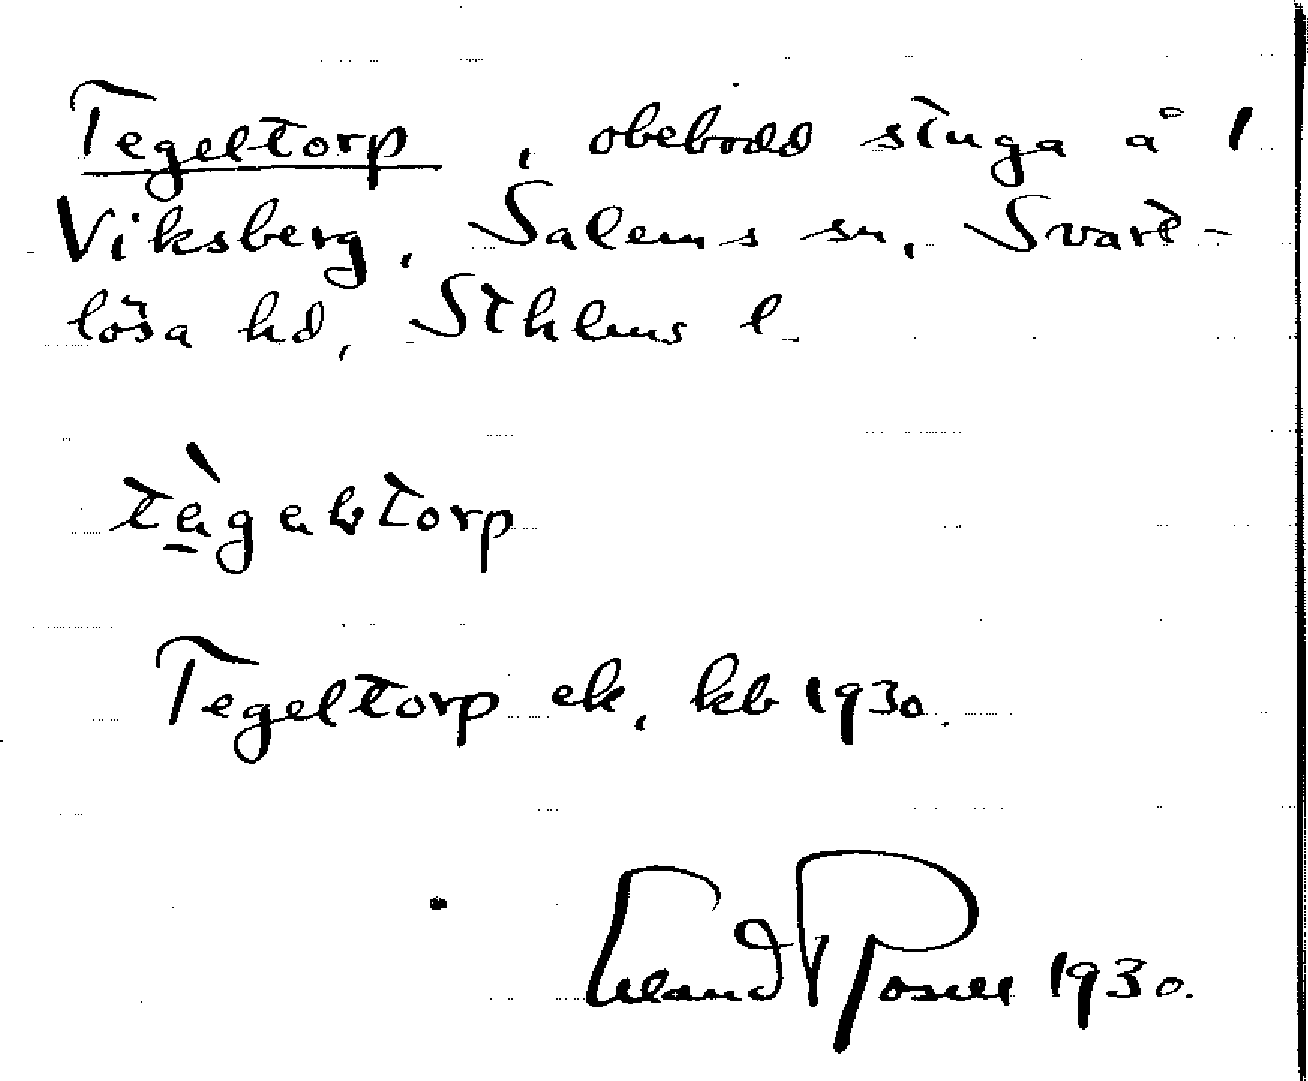 Tegeltorp, obebodd stuga å 1
Viksberg, Salems sn, Svart-
lösa hd, Sthlms l.
Tegeltorp ek, kb 1930.
Erland Rosell 1930.